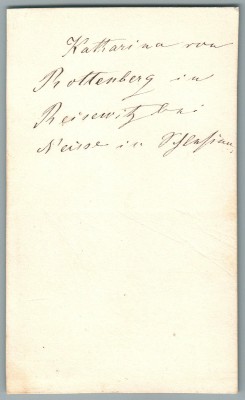 Katharina von
Rottenberg in
Reisewitz bei
Neisse in Schlesien.